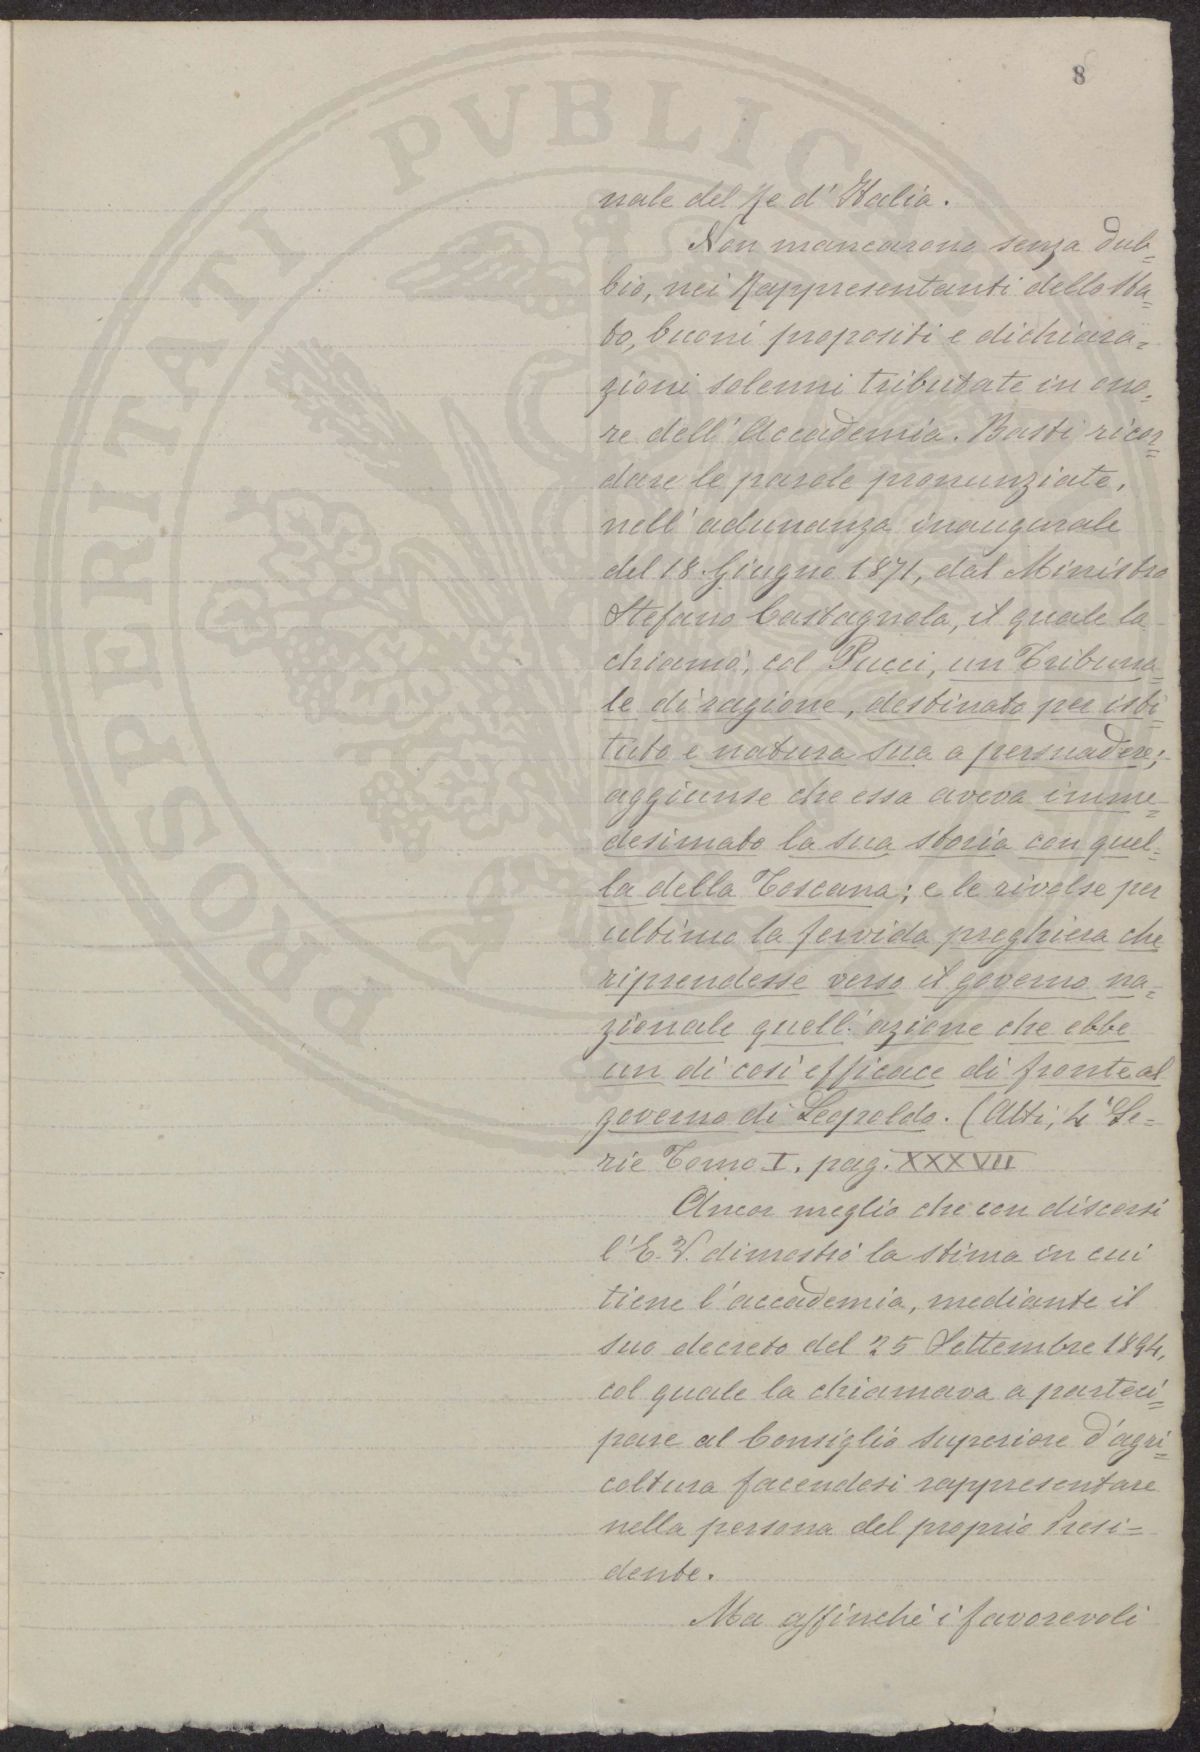 8
nale del Re d'Italia.
Non mancarono senza dub=
bio, nei Rappresentanti dello Sta=
to, buoni propositi e dichiara=
zioni solenni tributate in ono=
re dell'Accademia. Basti ricor=
dare le parole pronunziate,
nell'adunanza inaugurale
del 18 Giugno 1871, dal Ministro
Stefano Castagnola, il quale la
chiamò, col Pucci, un Tribuna=
le di ragione, destinato per isti=
tuto e natura sua a persuadere;
aggiunse che essa aveva imme=
desimato la sua storia con quel=
la della Toscana; e le rivolse per
ultimo la fervida preghiera che
riprendesse verso il governo na=
zionale quell'azione che ebbe
un dì così efficace di fronte al
governo di Leopoldo. (Atti, 4ª Se=
rie Tomo I. pag. XXXVII
Ancor meglio che con discorsi
l'E. V. dimostrò la stima in cui
tiene l'accademia, mediante il
suo decreto del 25 Settembre 1894,
col quale la chiamava a parteci=
pare al Consiglio superiore d'agri=
coltura facendosi rappresentare
nella persona del proprio Presi=
dente.
Ma affinché i favorevoli
PROSPERITATI PVBLIC